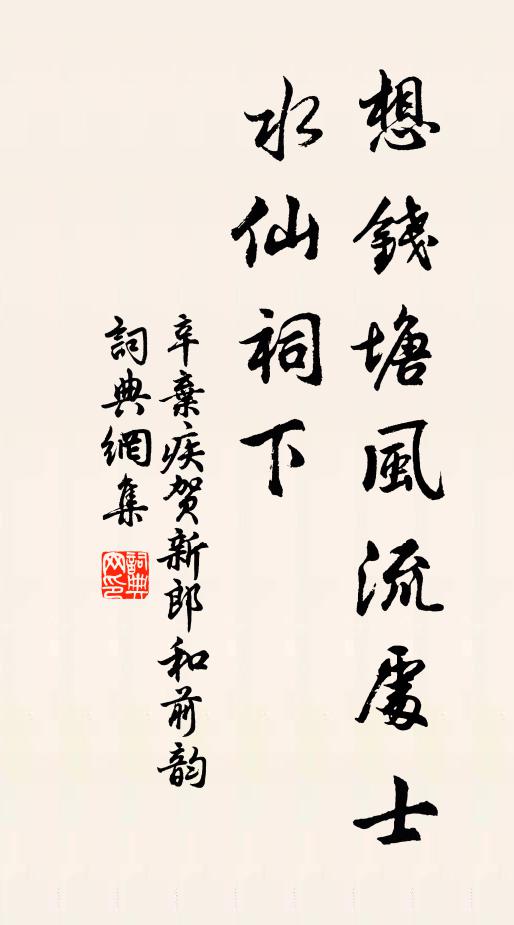 想錢塘風流處士
水仙祠下
辛棄疾賀新郎和前韵
詞典網集
詞典網印